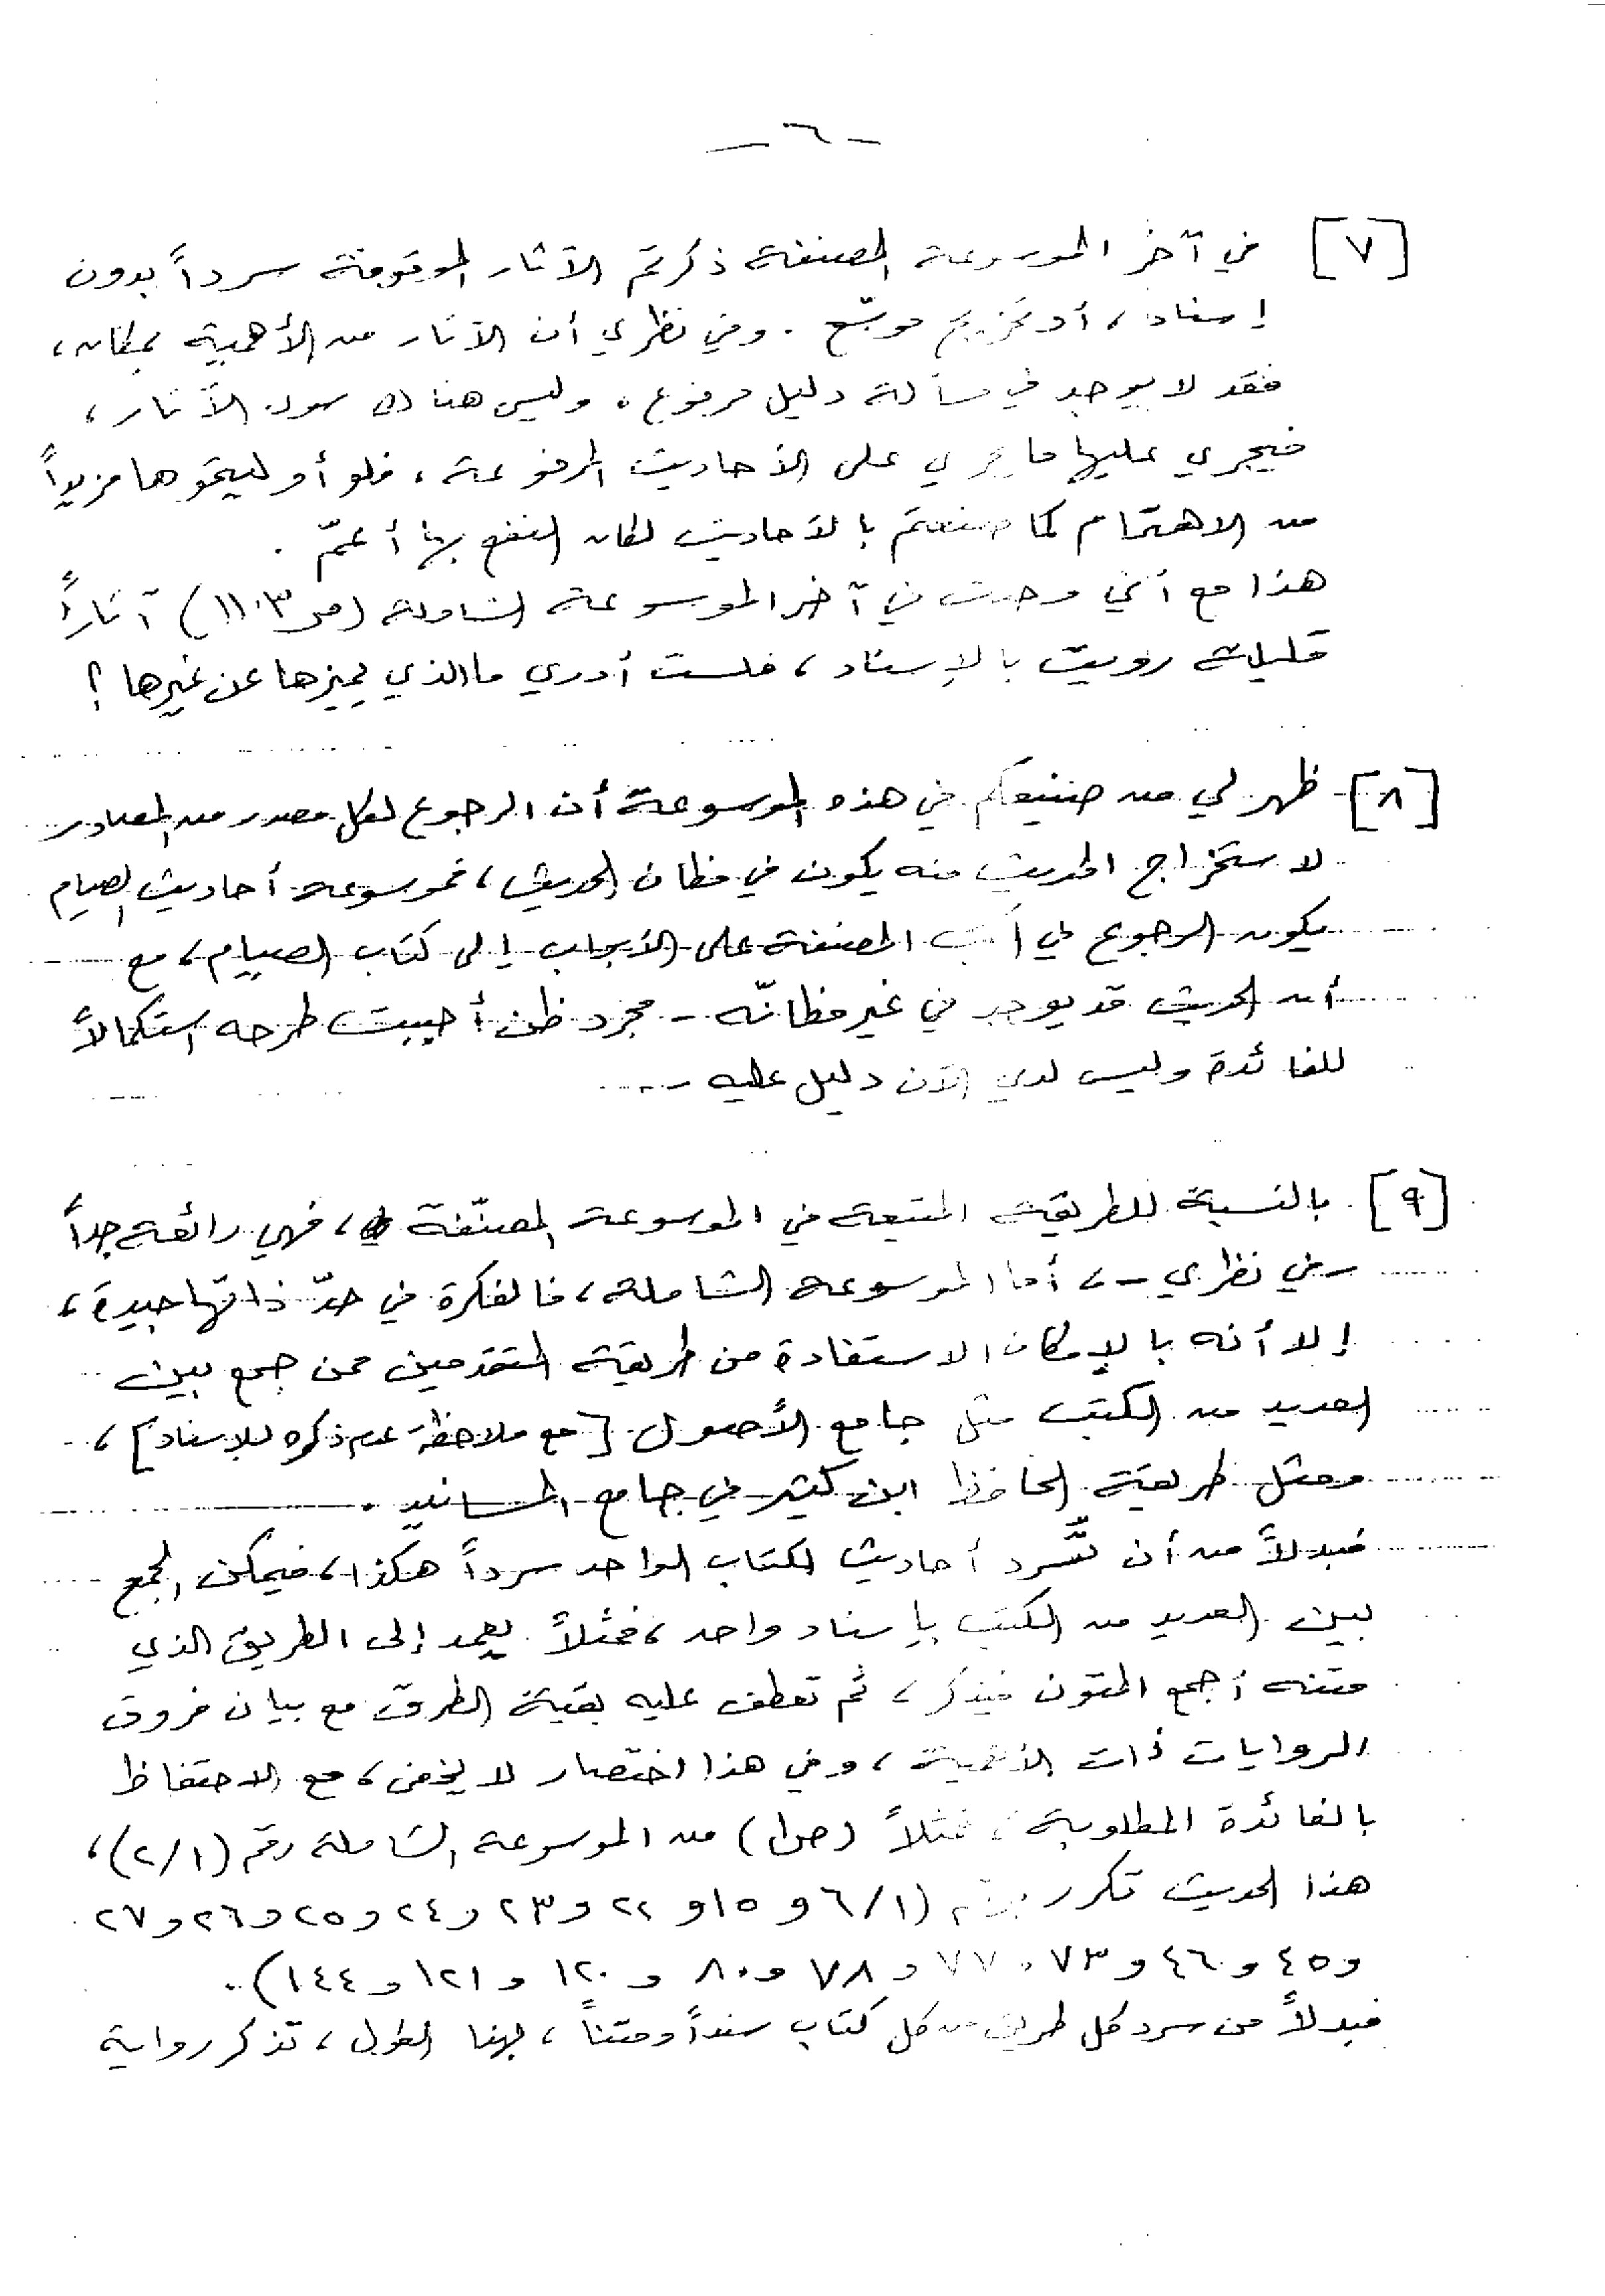 - ٦ -
[٧] في آخر الموسوعة المصنفة ذكرتم الآثار الموقوفة سرداً بدون
إسناد، أو تخريج موسّع. وفي نظري أن الآثار من الأهمية بمكان،
فقد لا يوجد في مسألة دليل مرفوع، وليس هناك سوى الآثار،
فيجري عليها ما يجري على الأحاديث المرفوعة، فلو أوليتموها مزيداً
من الاهتمام كما صنعتم بالأحاديث لكان النفع بها أعمّ.
هذا مع أنني وجدت في آخر الموسوعة الشاملة (ص ١١٠٣) آثاراً
قليلة رويت بالإسناد، فلست أدري ما الذي يميزها عن غيرها؟
[٨] ظهر لي من صنيعكم في هذه الموسوعة أن الرجوع لكل مصدر من المصادر
لاستخراج الحديث منه يكون في مظان الحديث، فموسوعة أحاديث الصيام
يكون الرجوع في المصنفة على الأبواب إلى كتاب الصيام، مع
أن الحديث قد يوجد في غير مظانّه - مجرد ظن أحببت طرحه استكمالاً
للفائدة وليس لدي الآن دليل عليه -
[٩] بالنسبة للطريقة المتبعة في الموسوعة المصنّفة، فهي رائعة جداً
- في نظري -، أما الموسوعة الشاملة، فالفكرة في حدّ ذاتها جيدة،
إلا أنه بالإمكان الاستفادة من طريقة المتقدمين ممن جمع بين
العديد من الكتب مثل جامع الأصول [مع ملاحظة عدم ذكره للإسناد]،
ومثل طريقة الحافظ ابن كثير في جامع المسانيد.
فبدلاً من أن تُسرد أحاديث الكتاب الواحد سرداً هكذا، فيمكن الجمع
بين العديد من الكتب بإسناد واحد، فمثلاً يعمد إلى الطريق الذي
متنه أجمع المتون فيذكر، ثم تعطف عليه بقية الطرق مع بيان فروق
الروايات ذات الأهمية، وفي هذا اختصار لا يخفى، مع الاحتفاظ
بالفائدة المطلوبة، فمثلاً (ص١) من الموسوعة الشاملة رقم (٢/١)،
هذا الحديث تكرر برقم (٦/١ و ١٥ و ٢٢ و ٢٣ و ٢٤ و ٢٥ و ٢٦ و ٢٧
و ٤٥ و ٤٦ و ٧٣ و ٧٧ و ٧٨ و ٨٠ و ١٢٠ و ١٢١ و ١٤٤).
فبدلاً من سرد كل طريق من كل كتاب سنداً ومتناً، بهذا الطول، تذكر رواية